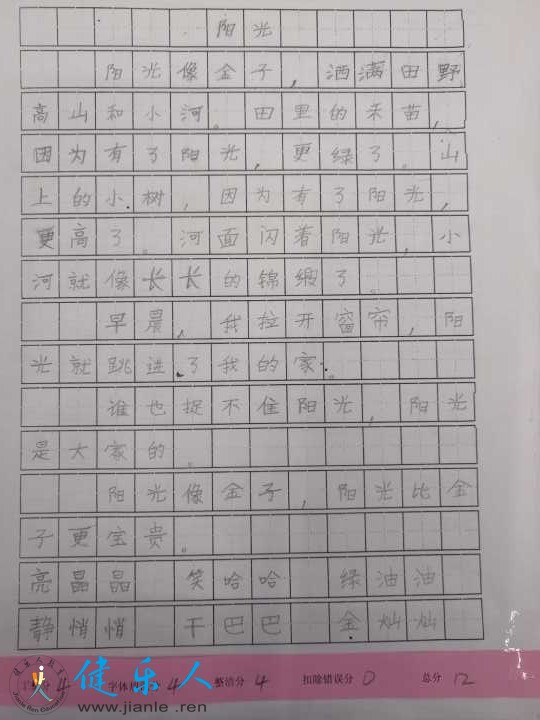 阳光
阳光像金子，洒满田野
高山和小河。田里的禾苗，
因为有了阳光，更绿了。山
上的小树，因为有了阳光，
更高了。河面闪着阳光，小
河就像长长的锦缎了。
早晨，我拉开窗帘，阳
光就跳进了我的家。
谁也捉不住阳光，阳光
是大家的。
阳光像金子，阳光比金
子更宝贵。
亮晶晶 笑哈哈 绿油油
静悄悄 干巴巴 金灿灿
4 字体 4 整洁分 4 扣除错误分 0 总分 12
健乐人
www.jianle.ren